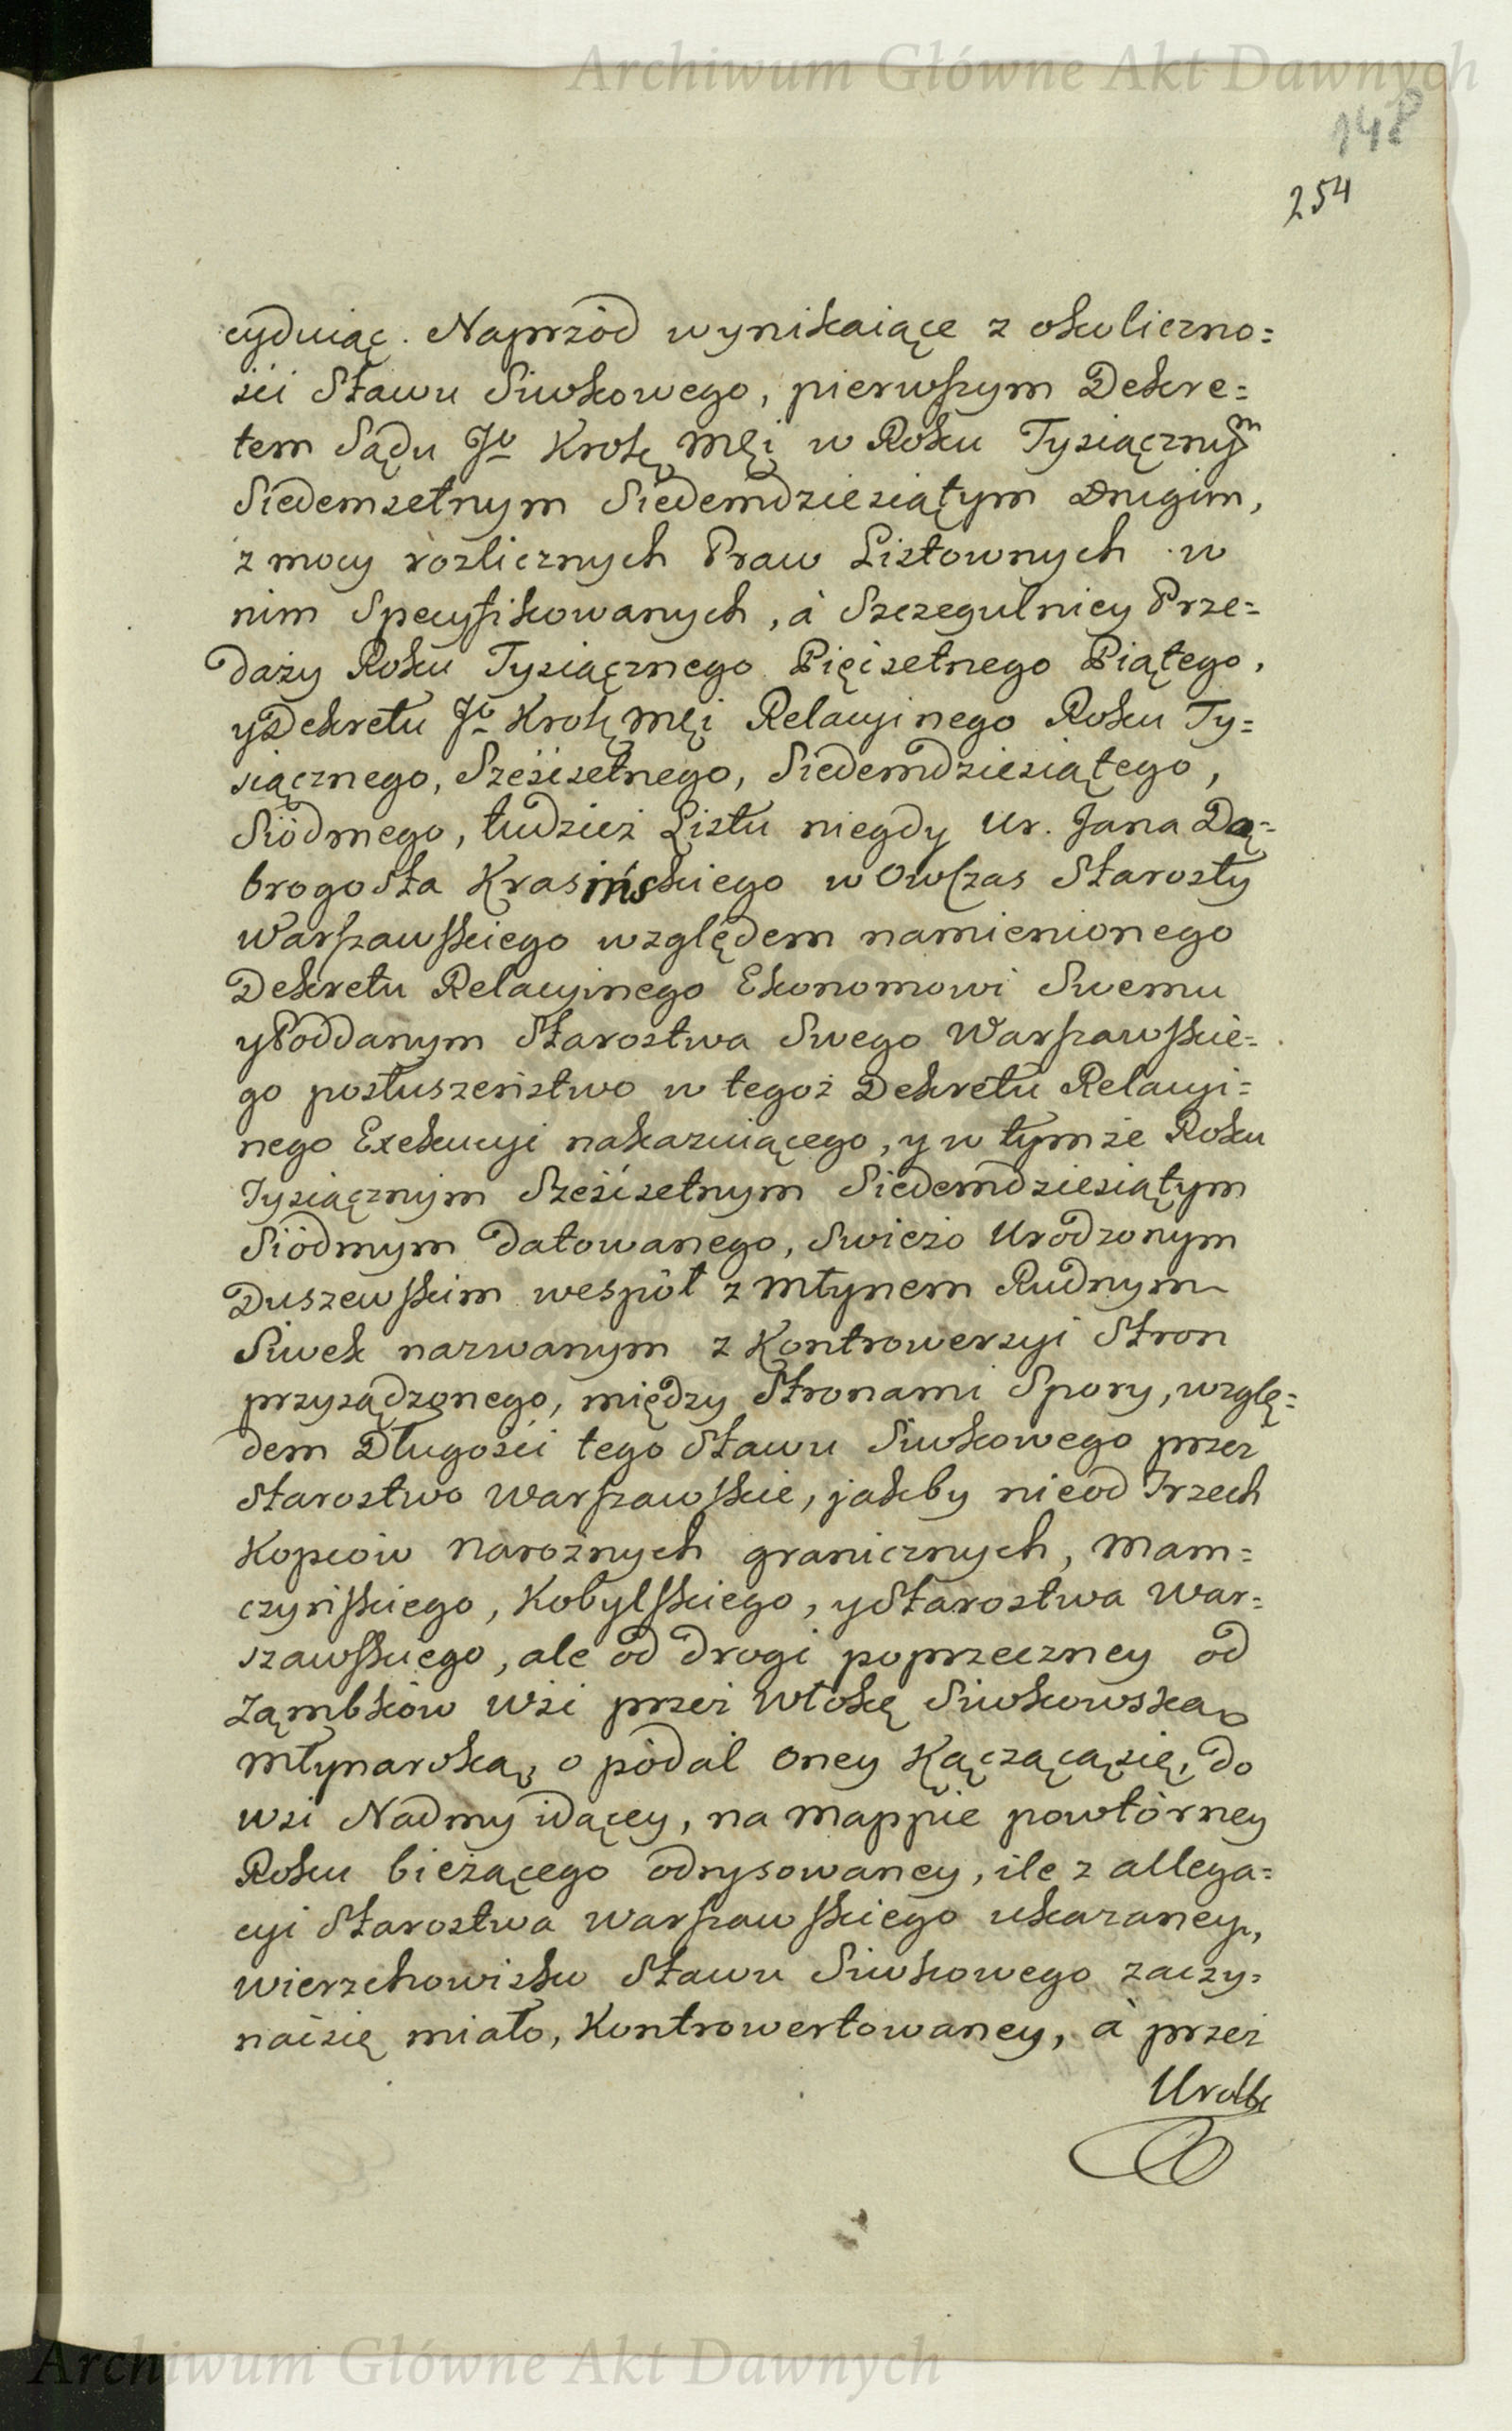 Archiwum Główne Akt Dawnych
148
254
cyduiąc. Naprzód wynikaiące z okoliczno=
ści Stawu Siwkowego, pierwszym Dekre=
tem Sądu Jo Krolę Męi w Roku Tysiącznym
Siedemsetnym Siedemdziesiątym Drugim,
z mocy rozlicznych Praw Listownych w
nim Specyfikowanych, à Szczegulniey Prze=
daży Roku Tysiącznego Pięćsetnego Piątego,
y Dekretu Jo Krolę Męi Relacyinego Roku Ty=
siącznego, Sześćsetnego, Siedemdziesiątego,
Siódmego, tudzież Listu niegdy Ur. Jana Do=
brogosta Krasińskiego w Owczas Starosty
Warszawskiego względem namienionego
Dekretu Relacyinego Ekonomowi Swemu
y Poddanym Starostwa Swego Warszawskie=
go posłuszeństwo w tegoż Dekretu Relacyi=
nego Exekucyi nakazuiącego, y w tymże Roku
Tysiącznym Sześćsetnym Siedemdziesiątym
Siódmym datowanego, Swieżo Urodzonym
Duszewskim wespół z Młynem Rudnym
Siwek nazwanym z Kontrowersyi Stron
przysądzonego, między Stronami Spory, wzglę=
dem Długości tego Stawu Siwkowego przez
Starostwo Warszawskie, jakby nieod Trzech
Kopców Narożnych granicznych, Mam=
czyńskiego, Kobylskiego, y Starostwa War=
szawskiego, ale od drogi poprzeczney od
Ząmbków Wsi przez Włokę Siwkowską
Młynarską, o pódal Oney Kączącąsię, do
wsi Nadmy idącey, na Mappie powtórney
Roku bieżącego odrysowaney, ile z allega=
cyi Starostwa Warszawskiego ukazaney,
wierzchowisko Stawu Siwkowego zaczy=
naćsię miało, Kontrowertowaney, à przez
Archiwum Główne Akt Dawnych